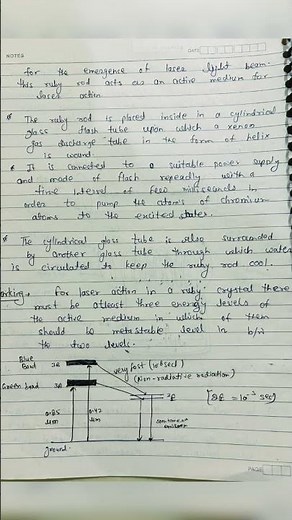 NOTES
DATE
for the emergence of laser light beam.
this ruby rod acts as an active medium for
laser action
The ruby rod is placed inside in a cylindrical
glass flash tube upon which a xenon
gas discharge tube in the form of helix
is wound.
It is connected to a suitable power supply
and made of flash repeadly with a
time interval of few miliseconds in
order to pump the atoms of chromium
atoms to the excited states.
The cylindrical glass tube is also surrounded
by another glass tube through which water
is circulated to keep the ruby rod cool.
orking. For laser action in a ruby crystal there
must be atleast three energy levels of
the active medium in which of them
should be metastable level in b/w
the two levels.
Blue
Band
very fast
(Non-radiative radiation)
Green band
sec)
0.55
0.42
um
ground
PAGE